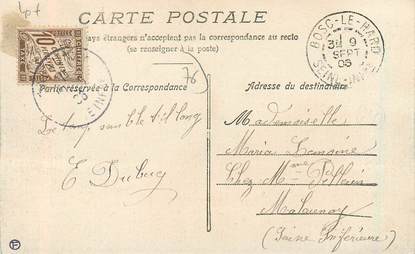 CARTE POSTALE
pays étrangers n'acceptent pas la correspondance au recto
(se renseigner à la poste)
BOSC-LE-HARD
9
SEPT
05
SEINE-INF
10
76
Partie réservée à la Correspondance
Adresse du destinataire
Le temps semble t-il long
E Dubuc
Mademoiselle
Maria Lemoine
Chez Mme
Malaunay
(Seine Inférieure)